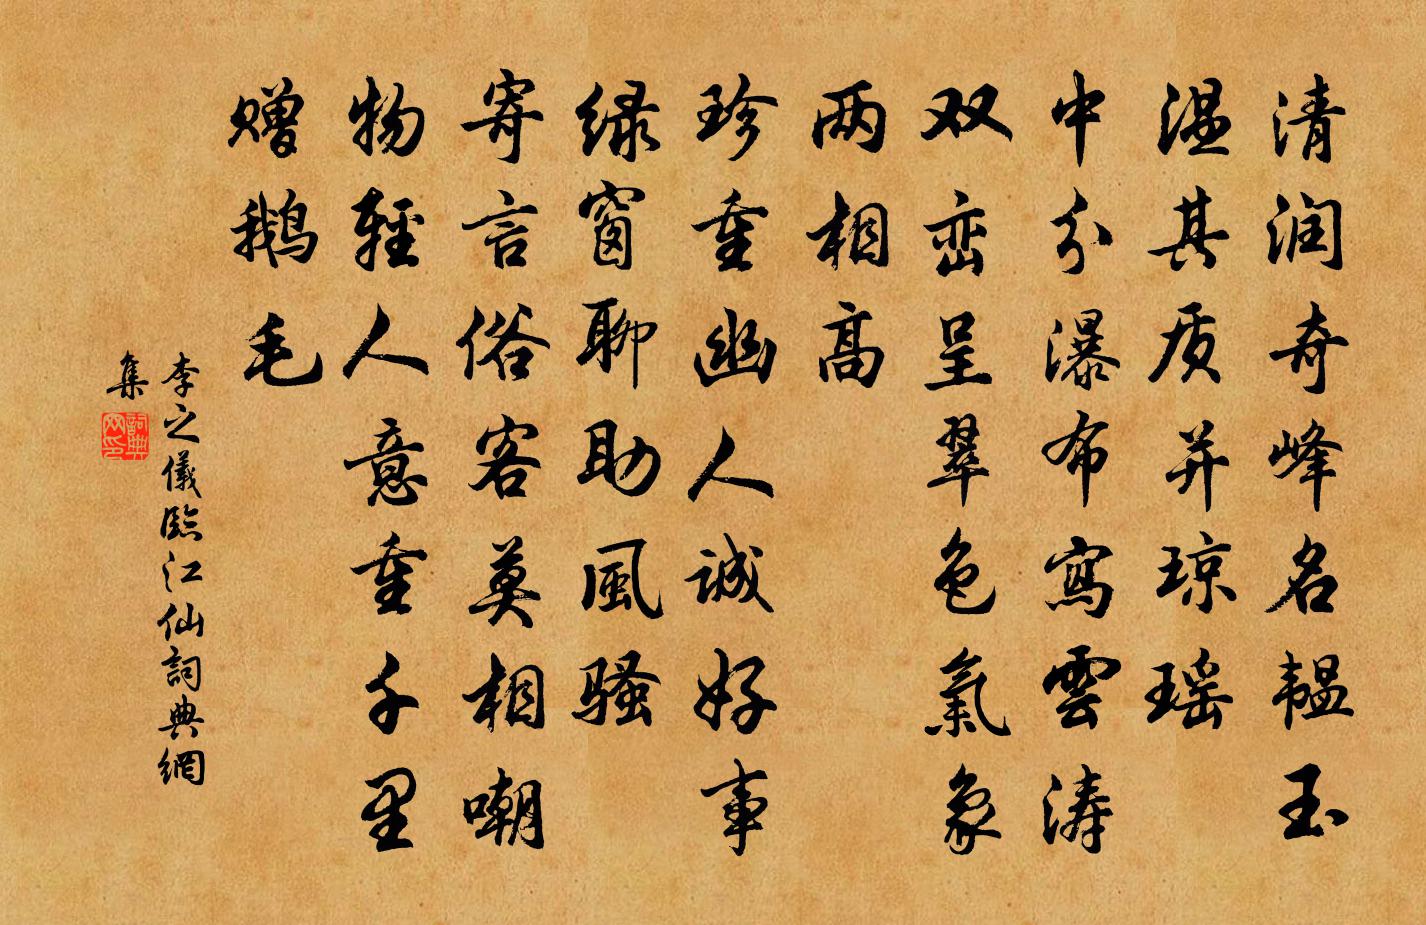 清润奇峰名韫玉
温其质并琼瑶
中分瀑布寫雲涛
双峦呈翠色氣象
两相高
珍重幽人诚好事
绿窗聊助風骚
寄言俗客莫相嘲
物輕人意重千里
赠鹅毛
李之儀臨江仙詞典網
集
詞典
网印